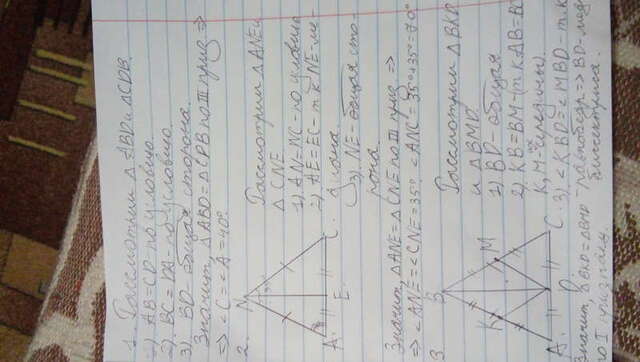 1. Рассмотрим △ ABD и △CDB.
1) AB=CD - по условию
2) BC=DA - по условию
3) BD - общая сторона.
Значит △ABD=△CDB по III призн ⇒
⇒ <C=<A=40°
2.
Рассмотрим △ANE и
△CNE
1) AN=NC - по условию
2) AE=EC - т.к NE - ме-
диана.
3) NE - общая сто-
рона
N
A
E
C
Значит, △ANE=△CNE по III призн ⇒
⇒ <ANE=<CNE=35° <ANC=35°+35°=70°
3
Рассмотрим △BKD
и △BMD
1) BD - общая
2) KB=BM - (т.к AB=BC
K,M - середины)
3) <KBD=<MBD - т.к
B
K
M
A
C
Значит, △BKD=△BMD
по I признаку.
равнобедр ⇒ BD
биссектриса.